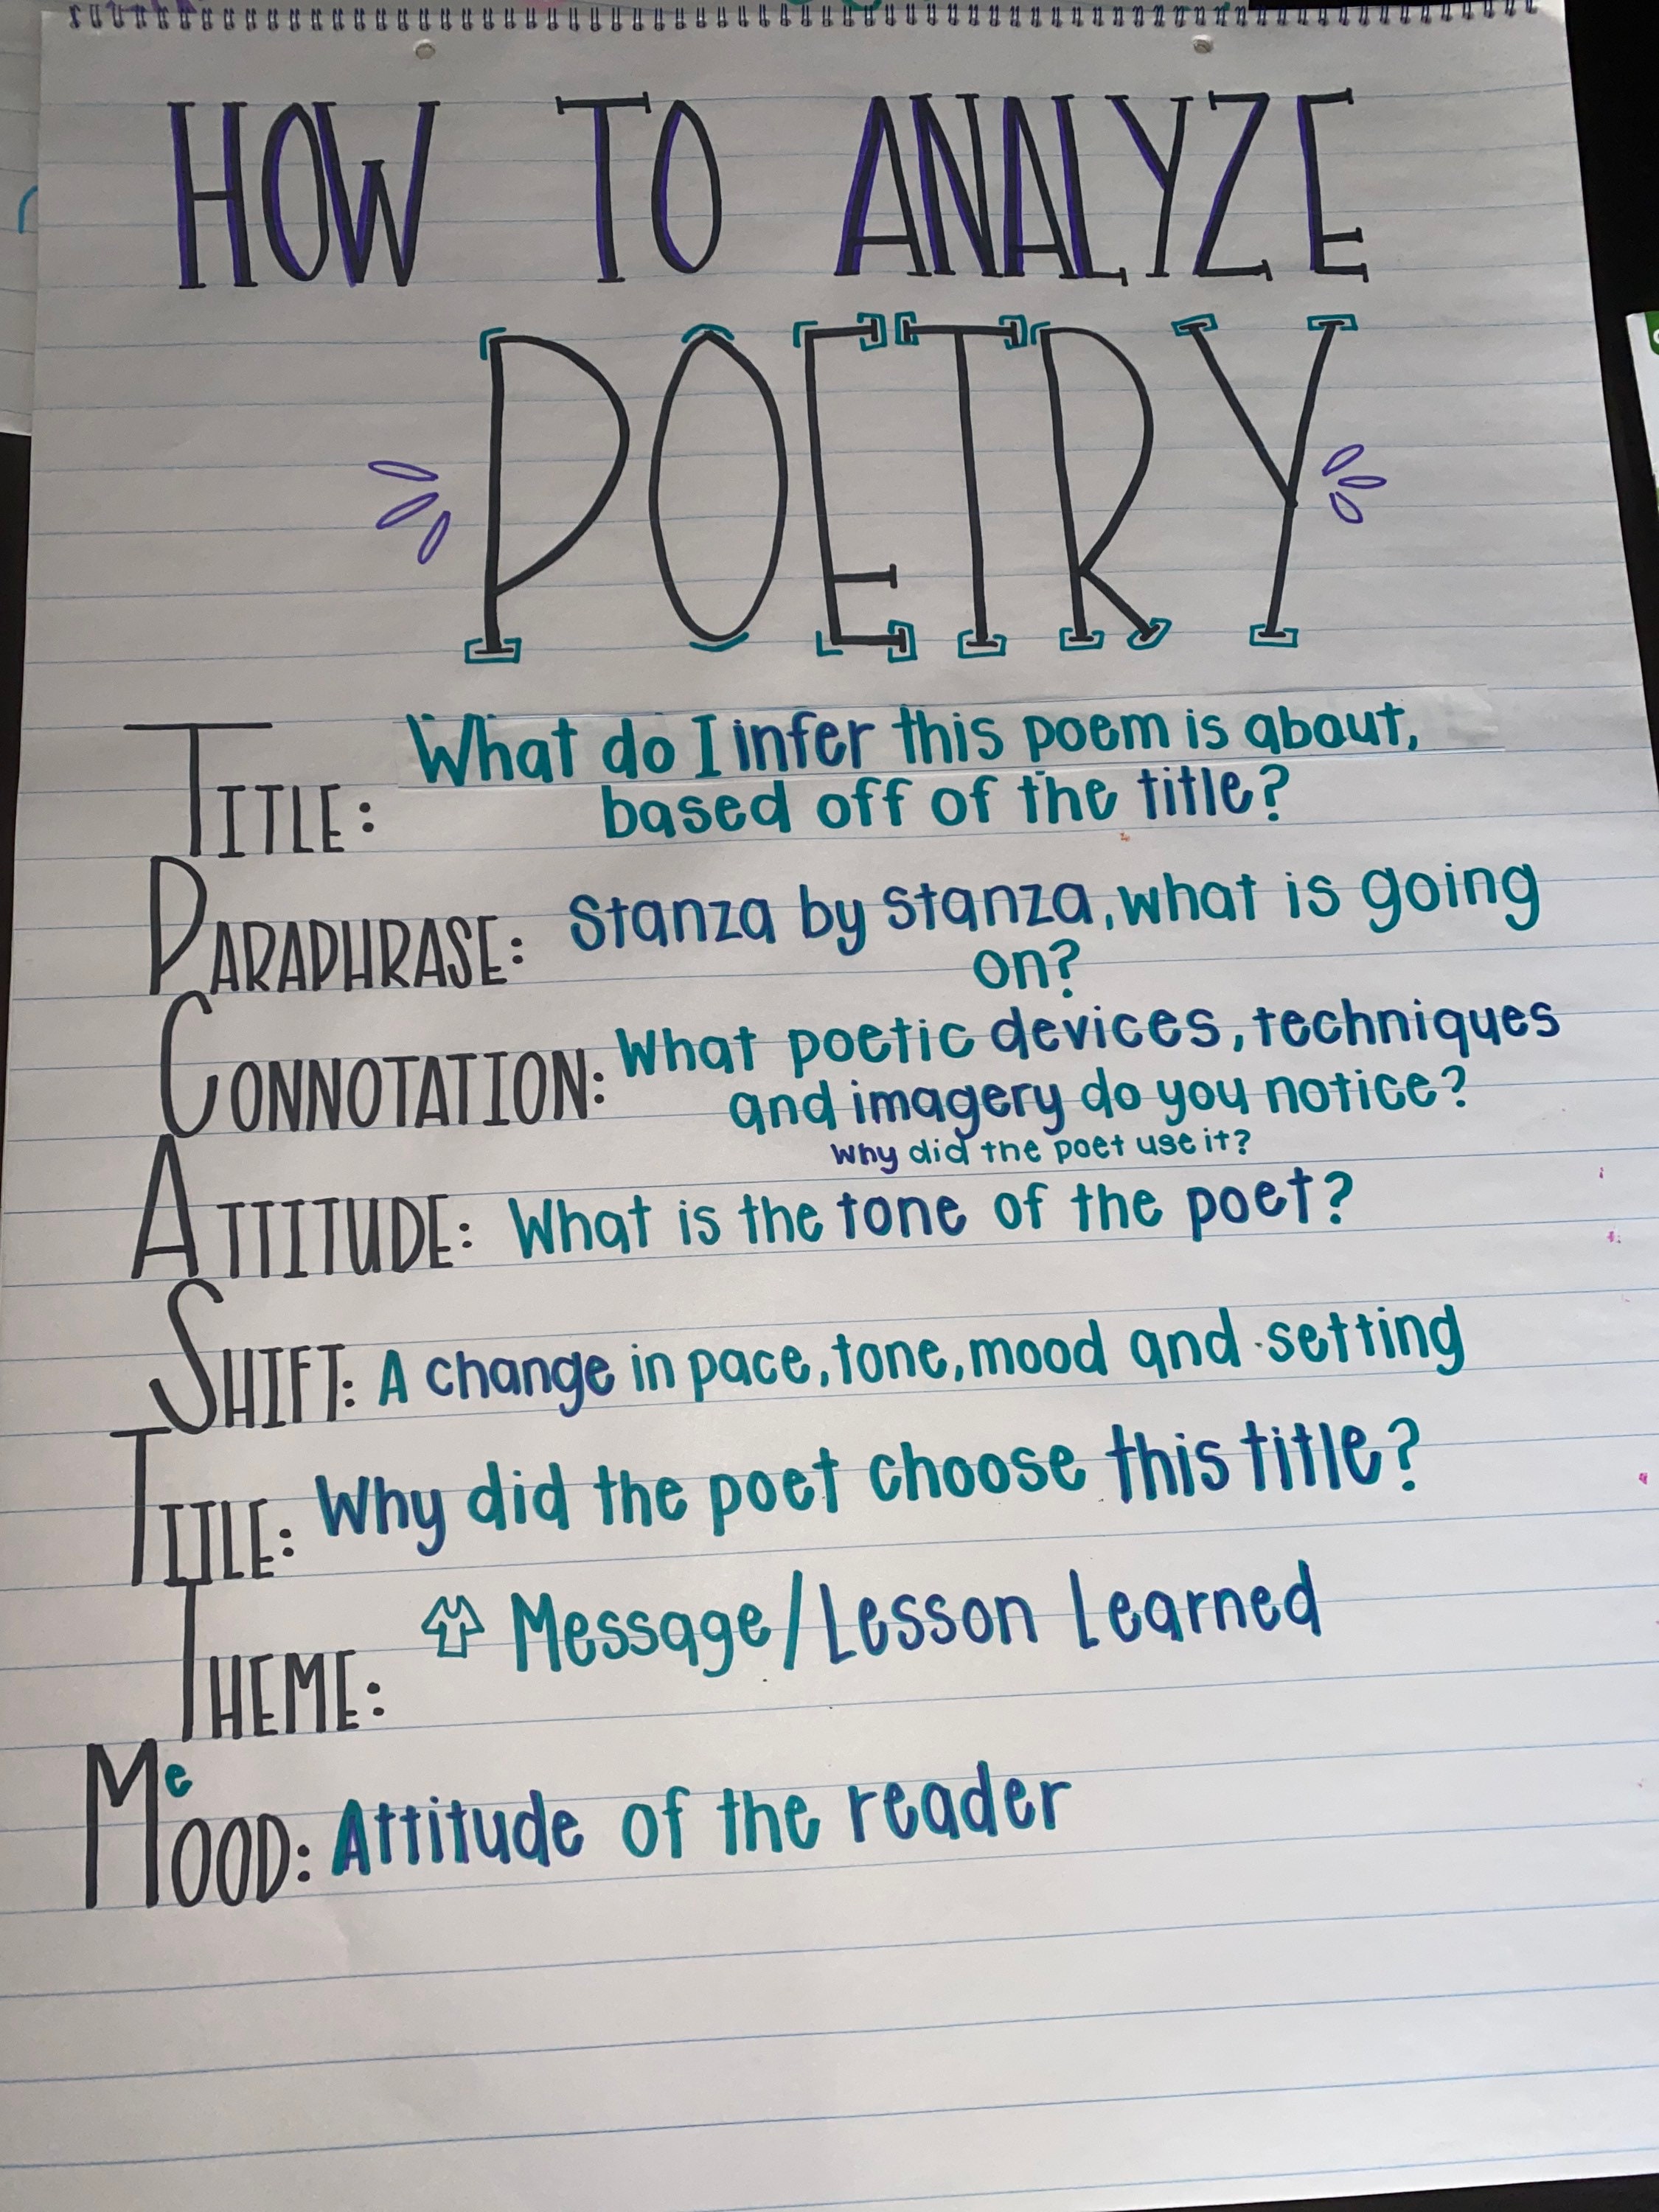 HOW TO ANALYZE
POETRY
TITLE: What do I infer this poem is about,
based off of the title?
PARAPHRASE: Stanza by stanza, what is going
on?
CONNOTATION: What poetic devices, techniques
and imagery do you notice?
Why did the poet use it?
ATTITUDE: What is the tone of the poet?
SHIFT: A change in pace, tone, mood and setting
TITLE: Why did the poet choose this title?
THEME: Message/Lesson Learned
Me
MOOD: Attitude of the reader